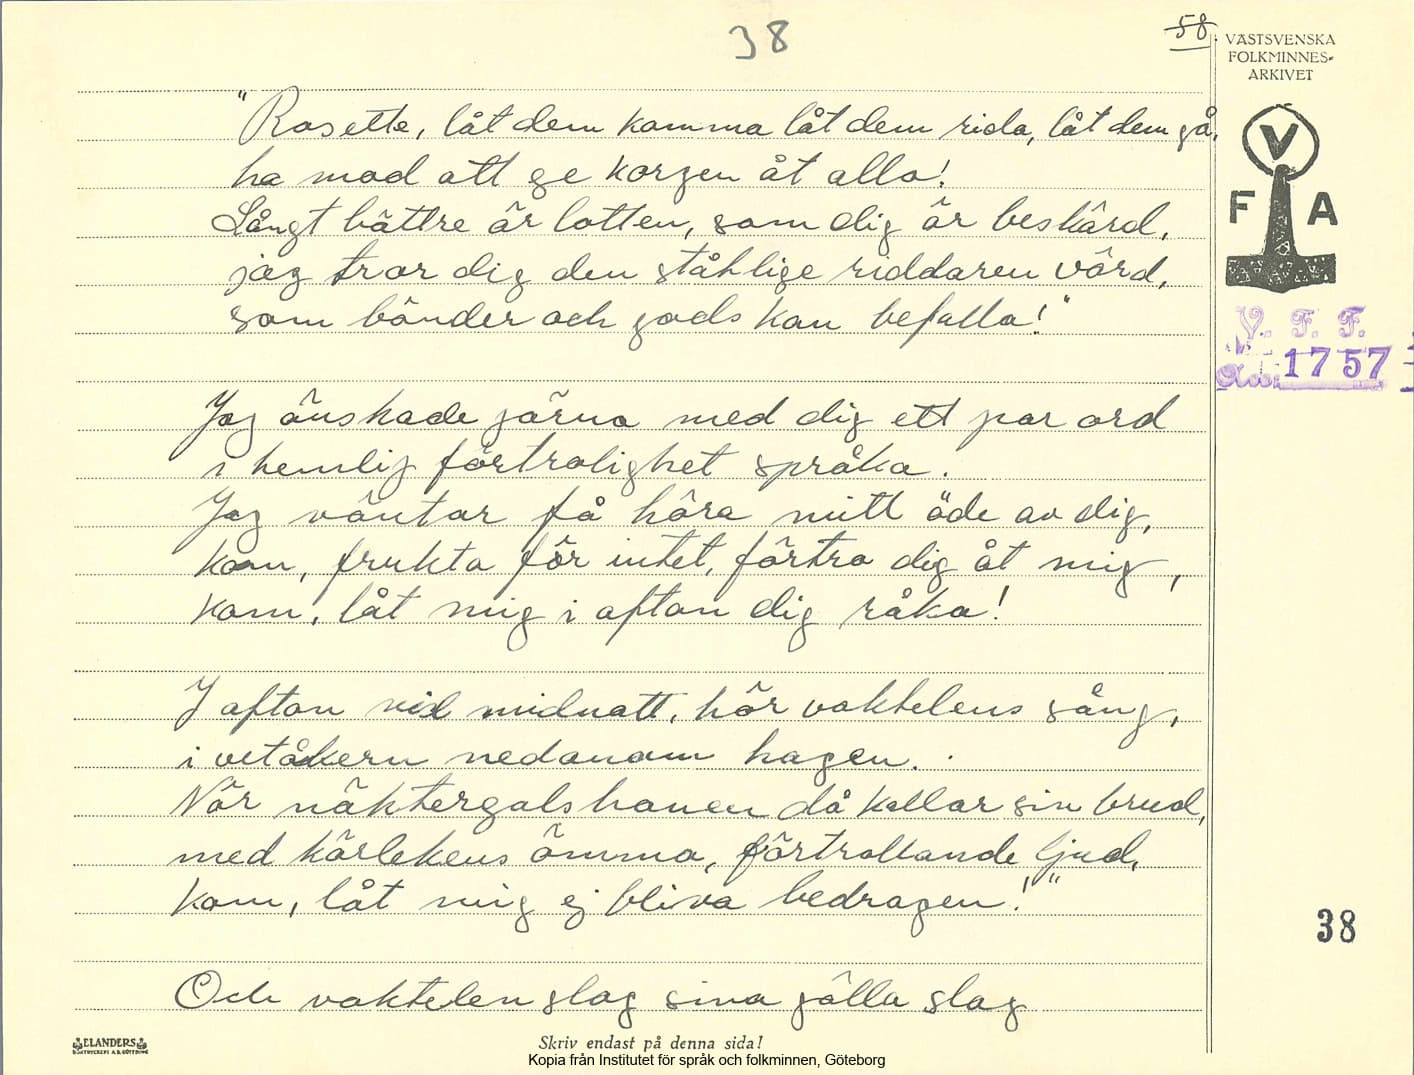 38
58.
VÄSTSVENSKA
FOLKMINNES-
ARKIVET
V
F A
V. F. F.
1757
"Rosette, låt dem komma låt dem rida, låt dem gå,
ha mod att ge korgen åt alla!
Långt bättre är lotten, som dig är beskärd,
jag tror dig den ståtlige riddaren värd,
som bönder och gods kan befalla!"
Jag önskade gärna med dig ett par ord
i hemlig förtrolighet språka.
Jag väntar få höra mitt öde av dig,
kom, frukta för intet, förtro dig åt mig,
kom, låt mig i afton dig råka!
I afton vid midnatt, hör vaktelens sång,
i vetåkern nedanom hagen.
När näktergalshanen då kallar sin brud,
med kärlekens ömma, förtrollande ljud,
kom, låt mig ej bliva bedragen!"
38
Och vaktelen slog sina gälla slag
ELANDERS
BOKTRYCKERI A.B. GÖTEBORG
Skriv endast på denna sida!
Kopia från Institutet för språk och folkminnen, Göteborg